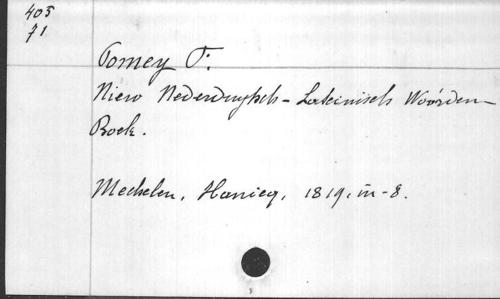 405
71
Pomey F.
Niew Nederduytsch - Lateinisch Woórden-
Boek.
Mechelen, Hanicq, 1819, in-8.